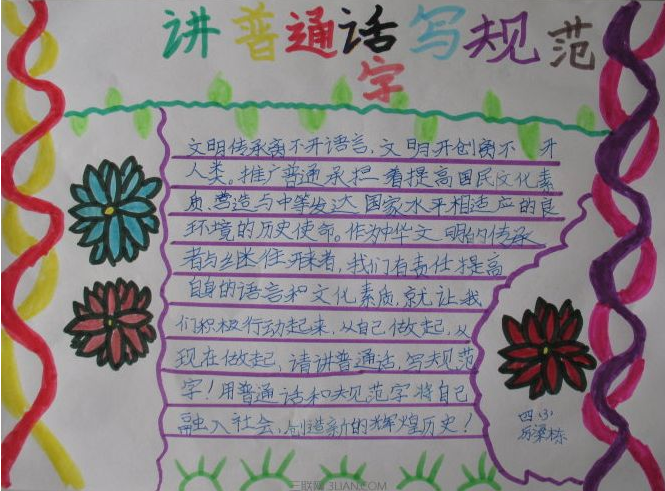 讲普通话写规范
字
文明传承离不开语言，文明开创离不开
人类。推广普通承担着提高国民文化素
质营造与中等发达国家水平相适应的良
环境的历史使命。作为中华文明的传承
者与继住开来者，我们有责任提高
自身的语言和文化素质，就让我
们积极行动起来，从自己做起，从
现在做起，请讲普通话，写规范
字！用普通话和规范字将自己
融入社会，创造新的辉煌历史！
四(3)
梁栋
三联网 3LIAN.COM